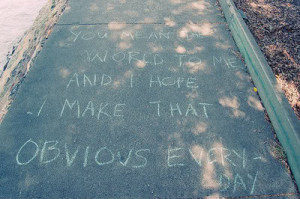 YOU MEAN THE
WORLD TO ME
AND I HOPE
I MAKE THAT
OBVIOUS EVERY-
DAY